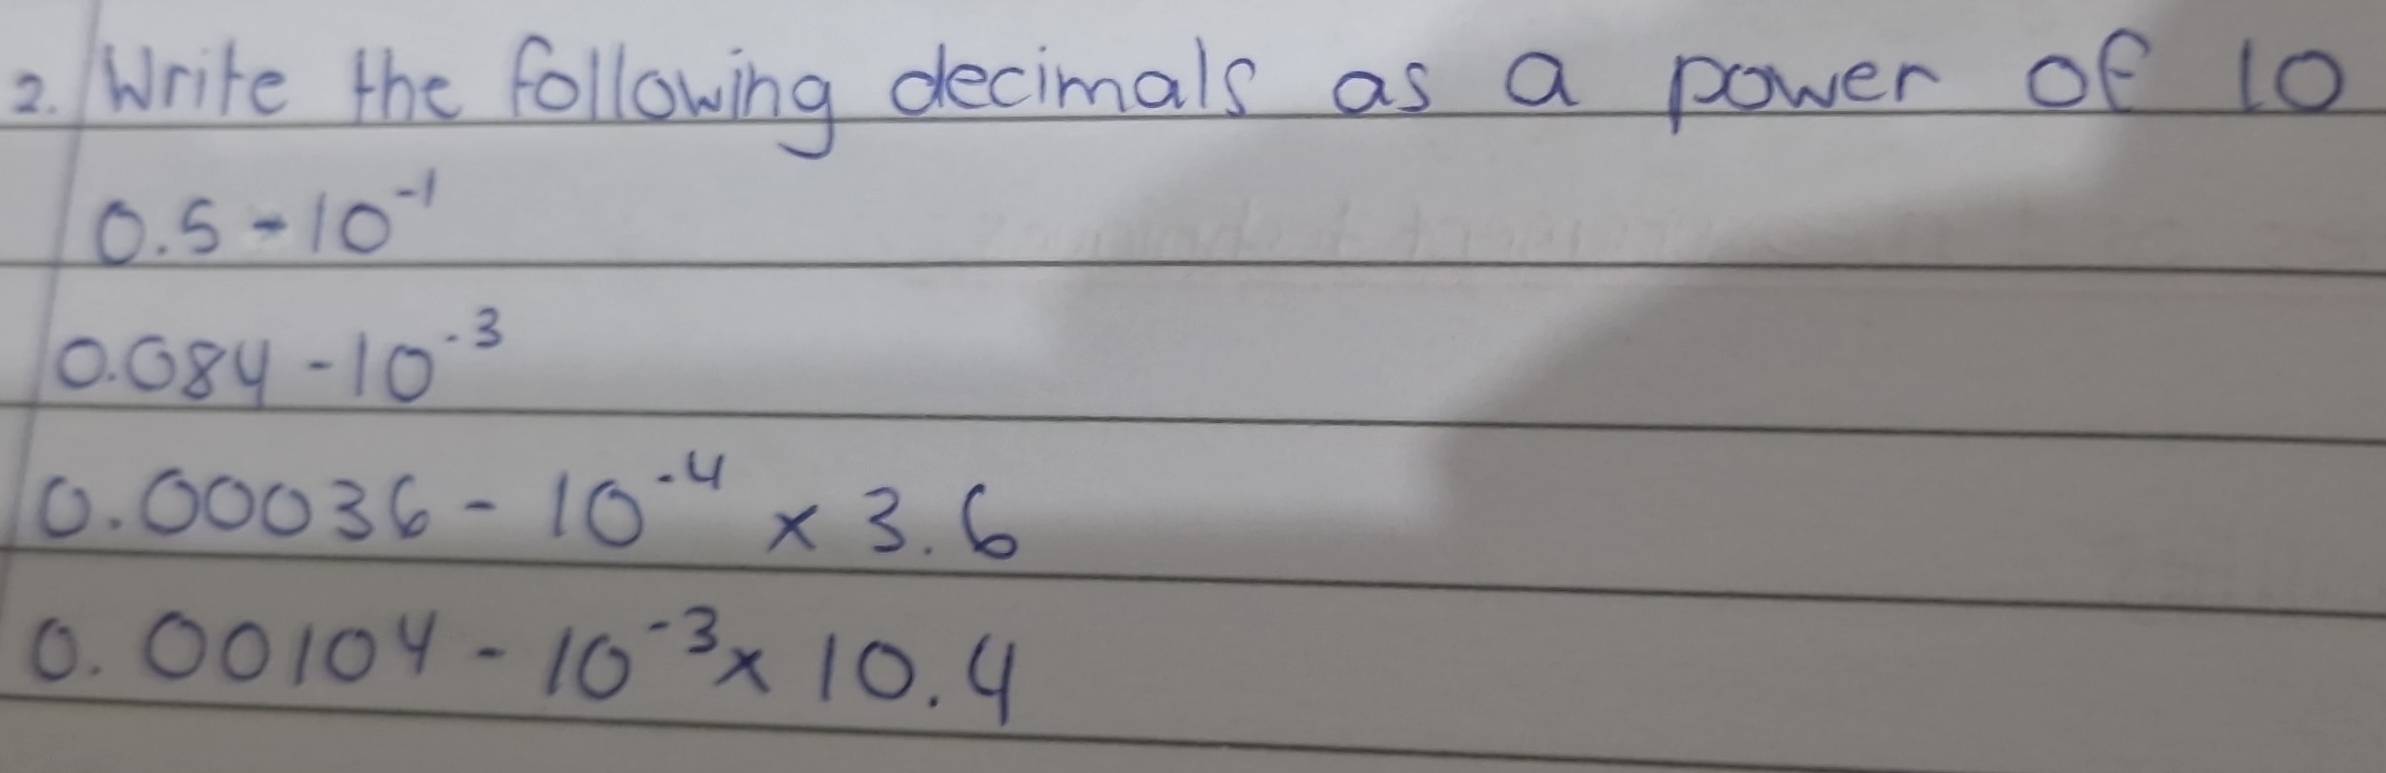 2. Write the following decimals as a power of 10
0.5 - 10⁻¹
0.084 - 10⁻³
0.00036 - 10⁻⁴ × 3.6
0.00104 - 10⁻³ × 10.4